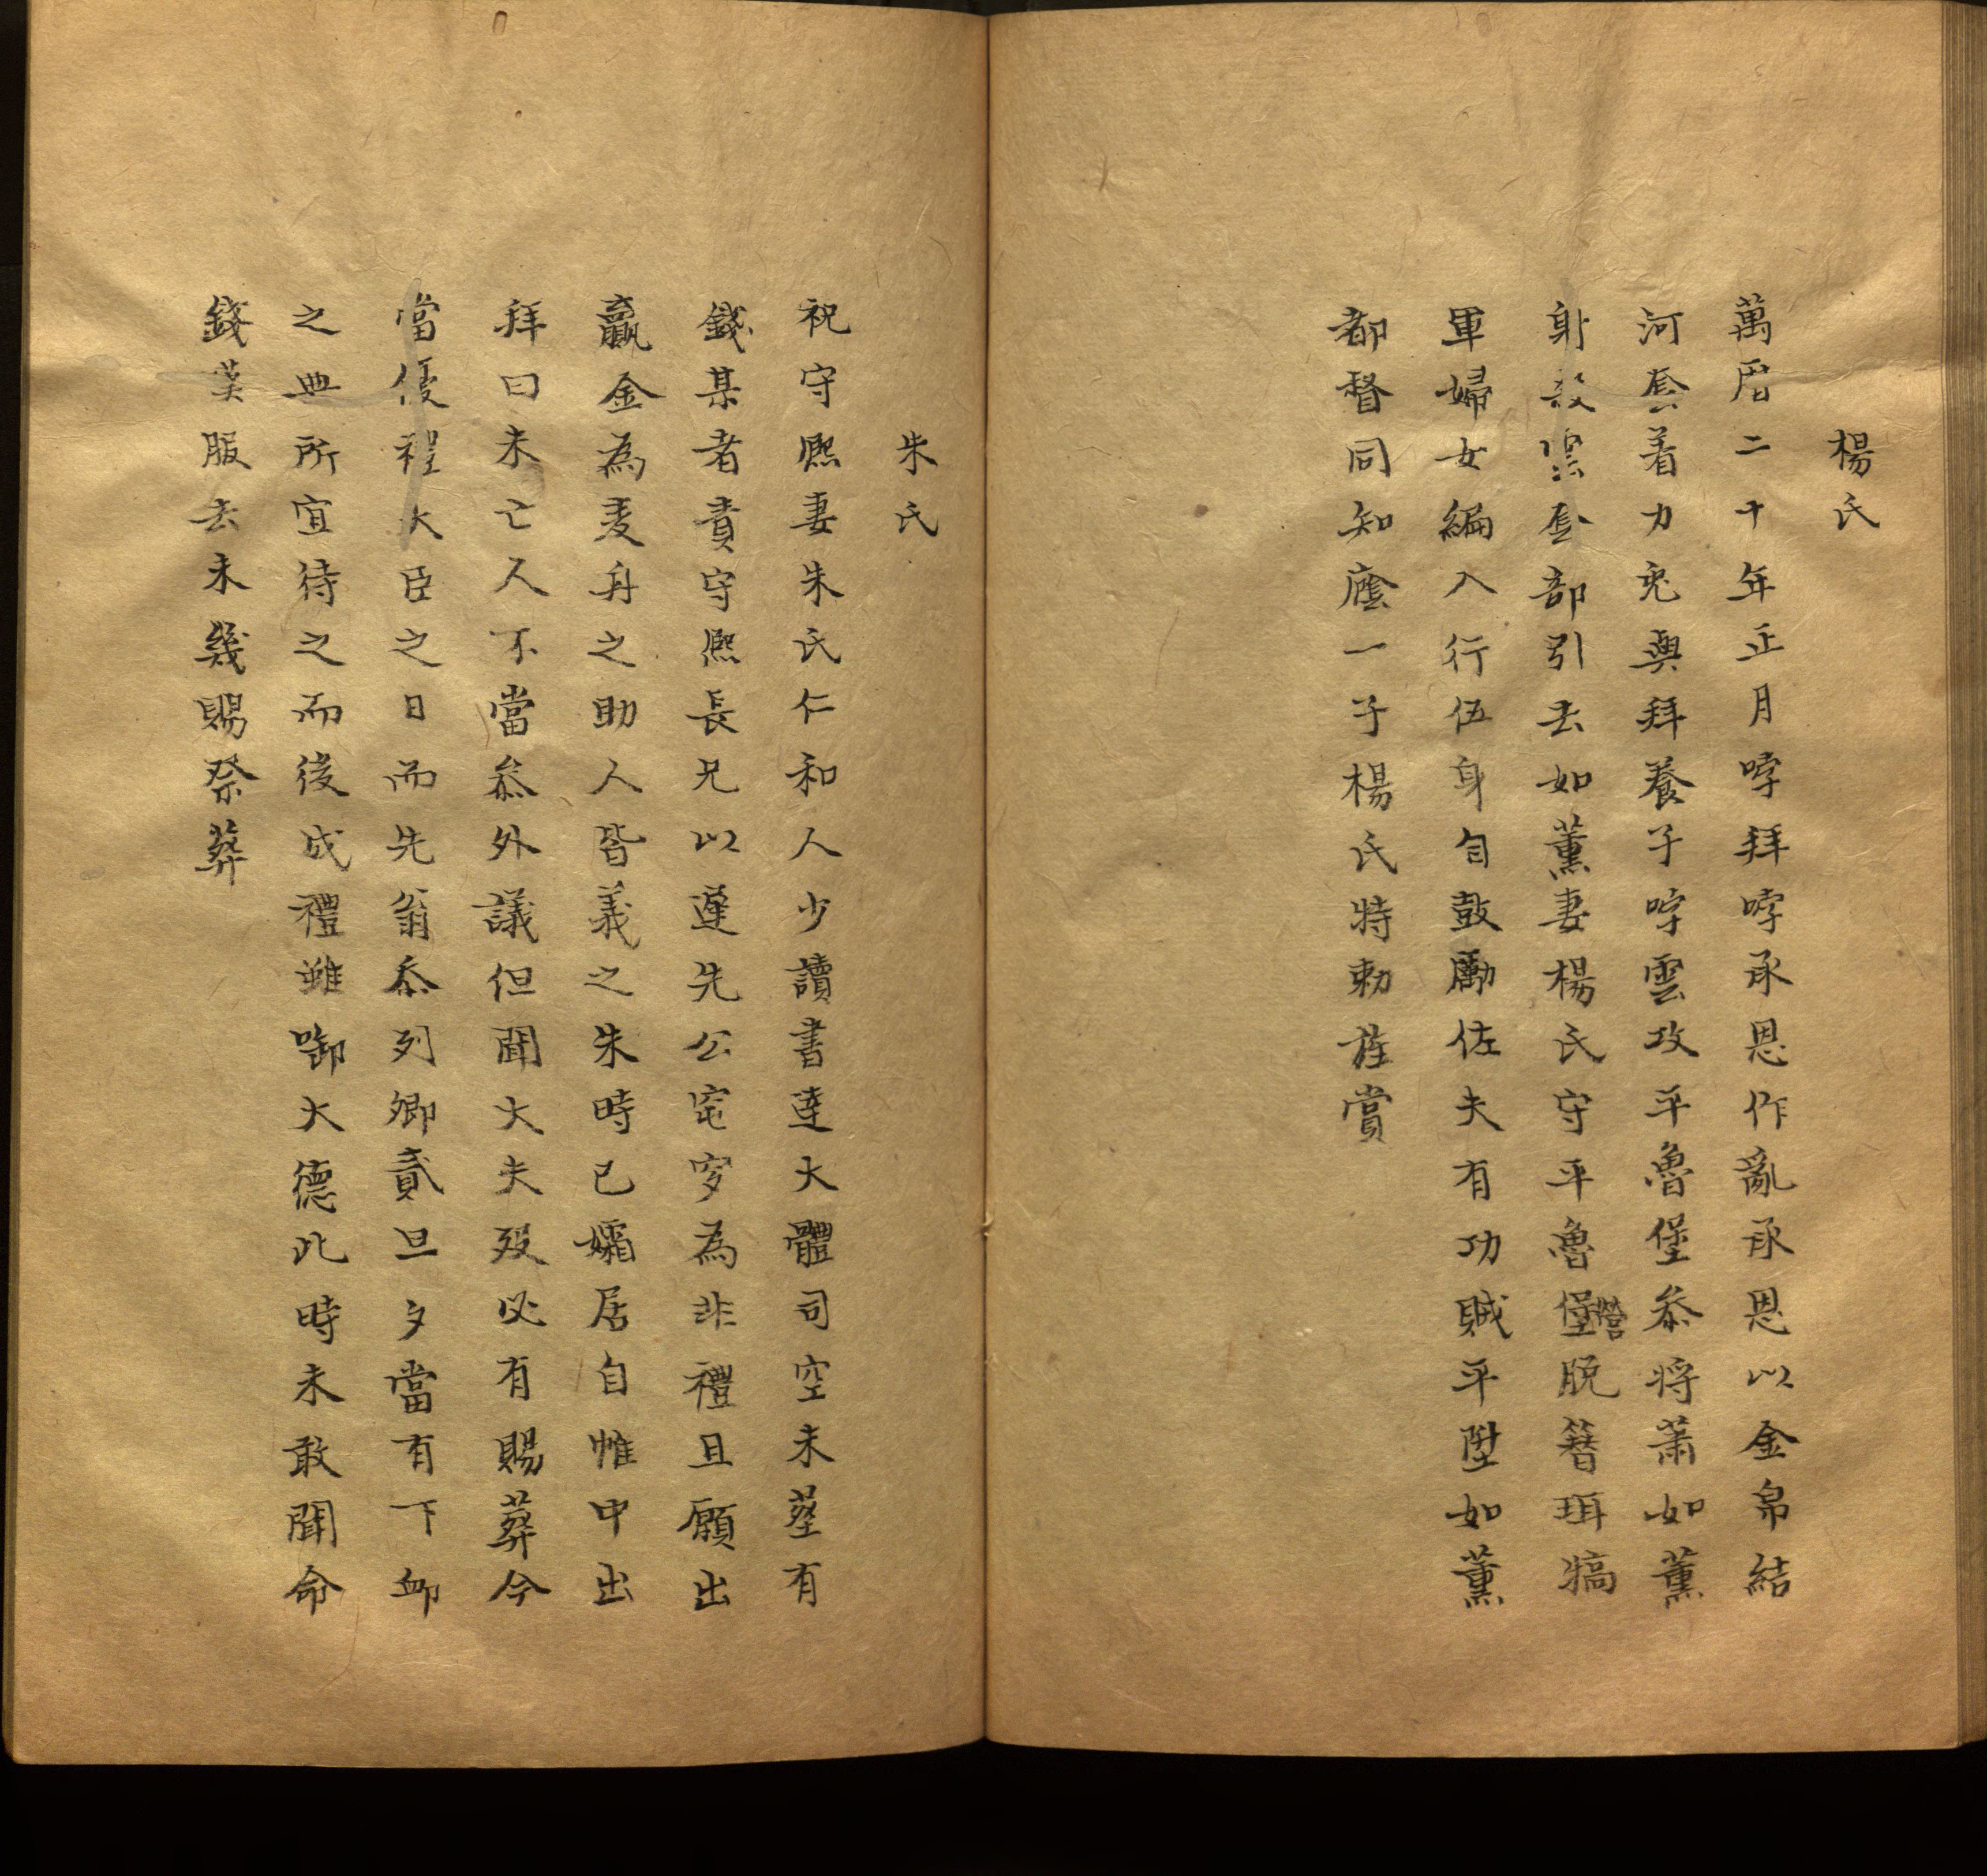 楊氏
萬厯二十年正月哱拜哱承恩作亂承恩以金帛結
河套着力兎與拜養子哱雲攻平魯堡叅将萧如薰
射殺雲套部引去如薰妻楊氏守平魯堡嘗脱簪珥犒
軍婦女編入行伍身自鼓勵佐夫有功賊平陞如薰
都督同知廕一子楊氏特勅旌賞
朱氏
祝守熈妻朱氏仁和人少讀書達大體司空未塟有
錢某者責守熈長兄以遲先公窀穸為非禮且願出
羸金為麦舟之助人皆義之朱時已孀居自帷中出
拜曰未亡人不當叅外議但聞大夫殁必有賜葬今
當優禮大臣之日而先翁忝列卿貳旦夕當有下䘏
之典所宜待之而後成禮雖啣大德此時未敢聞命
錢某服去未幾賜祭葬